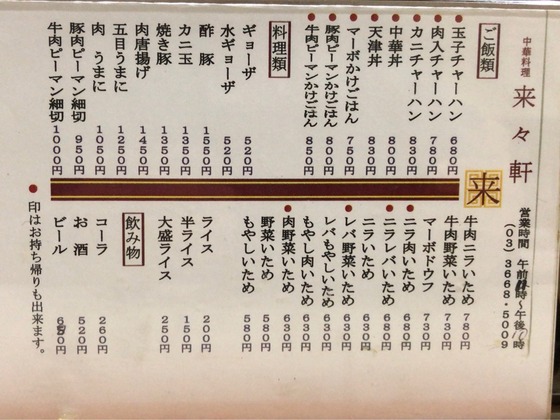 中華料理
来々軒
営業時間 午前 時〜午後10時
(03)3668-5009
ご飯類
●玉子チャーハン 680円
●肉入チャーハン 780円
●カニチャーハン 830円
●中華丼 800円
天津丼 830円
●マーボかけごはん 750円
●豚肉ピーマンかけごはん 800円
●牛肉ピーマンかけごはん 850円
料理類
ギョーザ 520円
水ギョーザ 520円
酢豚 1550円
カニ玉 1350円
焼き豚 1350円
肉唐揚げ 1450円
五目うまに 1250円
肉うまに 1050円
豚肉ピーマン細切 950円
牛肉ピーマン細切 1000円
来
牛肉ニラいため 780円
牛肉野菜いため 730円
マーボドウフ 730円
●ニラ肉いため 680円
●ニラレバいため 680円
ニラいため 630円
●レバ野菜いため 630円
レバもやしいため 630円
もやし肉いため 630円
●肉野菜いため 630円
野菜いため 580円
もやしいため 580円
ライス 200円
半ライス 150円
大盛ライス 250円
飲み物
コーラ 260円
お酒 520円
ビール
●印はお持ち帰りも出来ます。